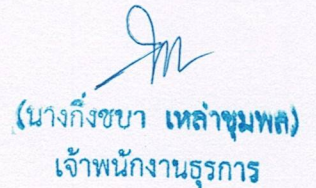 (นางกิ่งชบา เหล่าชุมพล)
เจ้าพนักงานธุรการ